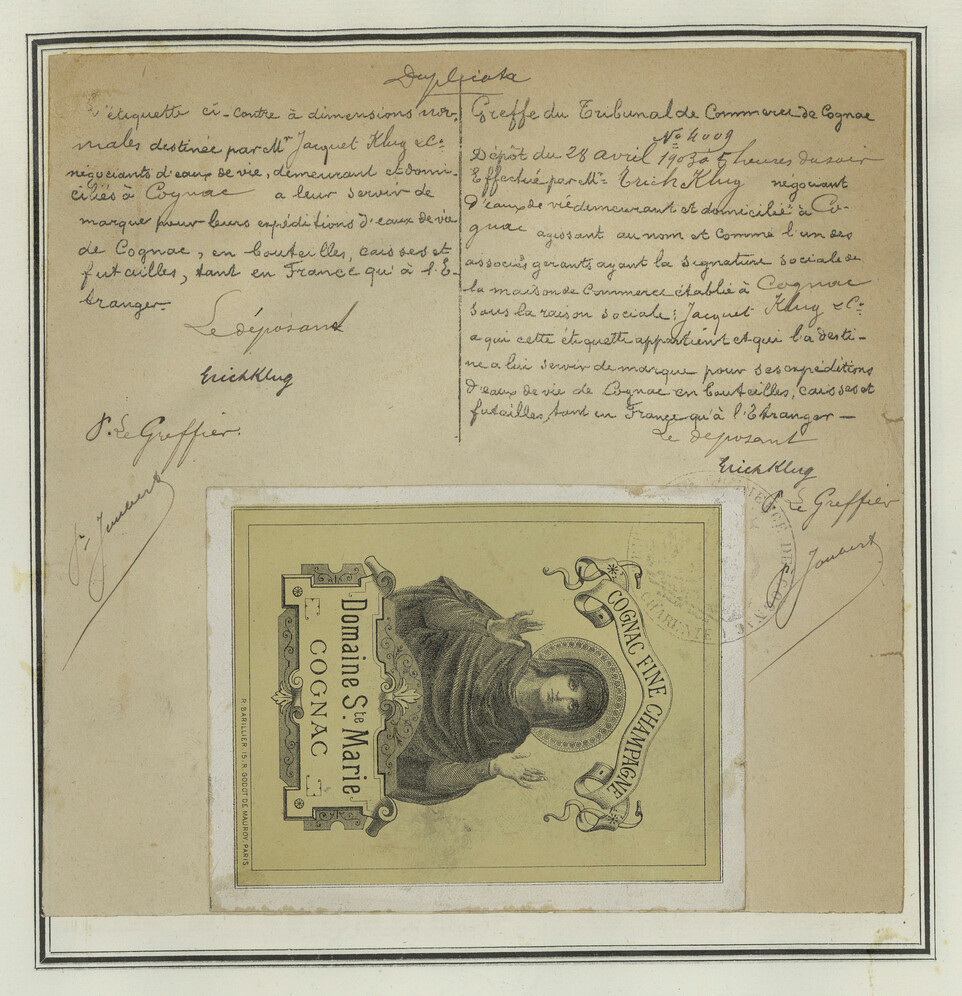 Duplicata
L'étiquette ci-contre à dimensions nor-
males destinée par Mr Jacquet Klug & Cie
négociants d'eaux de vie, demeurant et domi-
ciliés à Cognac a leur servir de
marque pour leurs expéditions d'eaux de vie
de Cognac, en bouteilles, caisses et
futailles, tant en France qu'à l'E-
tranger.
Le déposant
Erich Klug
P. Le Greffier.
Joubert
Greffe du Tribunal de Commerce de Cognac
No 4009
Dépôt du 28 avril 1903 à heures du soir
Effectué par Mr Erich Klug négociant
d'eaux de vie demeurant et domicilié à Co-
gnac agissant au nom et comme l'un des
associés gérants ayant la signature sociale de
la maison de Commerce établie à Cognac
sous la raison sociale: Jacquet Klug & Cie
a qui cette étiquette appartient et qui la desti-
ne a lui servir de marque pour ses expéditions
d'eaux de vie de Cognac en bouteilles, caisses et
futailles, tant en France qu'à l'Etranger —
Le déposant
Erich Klug
P. Le Greffier
Joubert
COGNAC FINE CHAMPAGNE
Domaine Ste Marie
COGNAC
R. BARILLIER. 15. R. GODOT DE MAUROY. PARIS.
CHARENTE